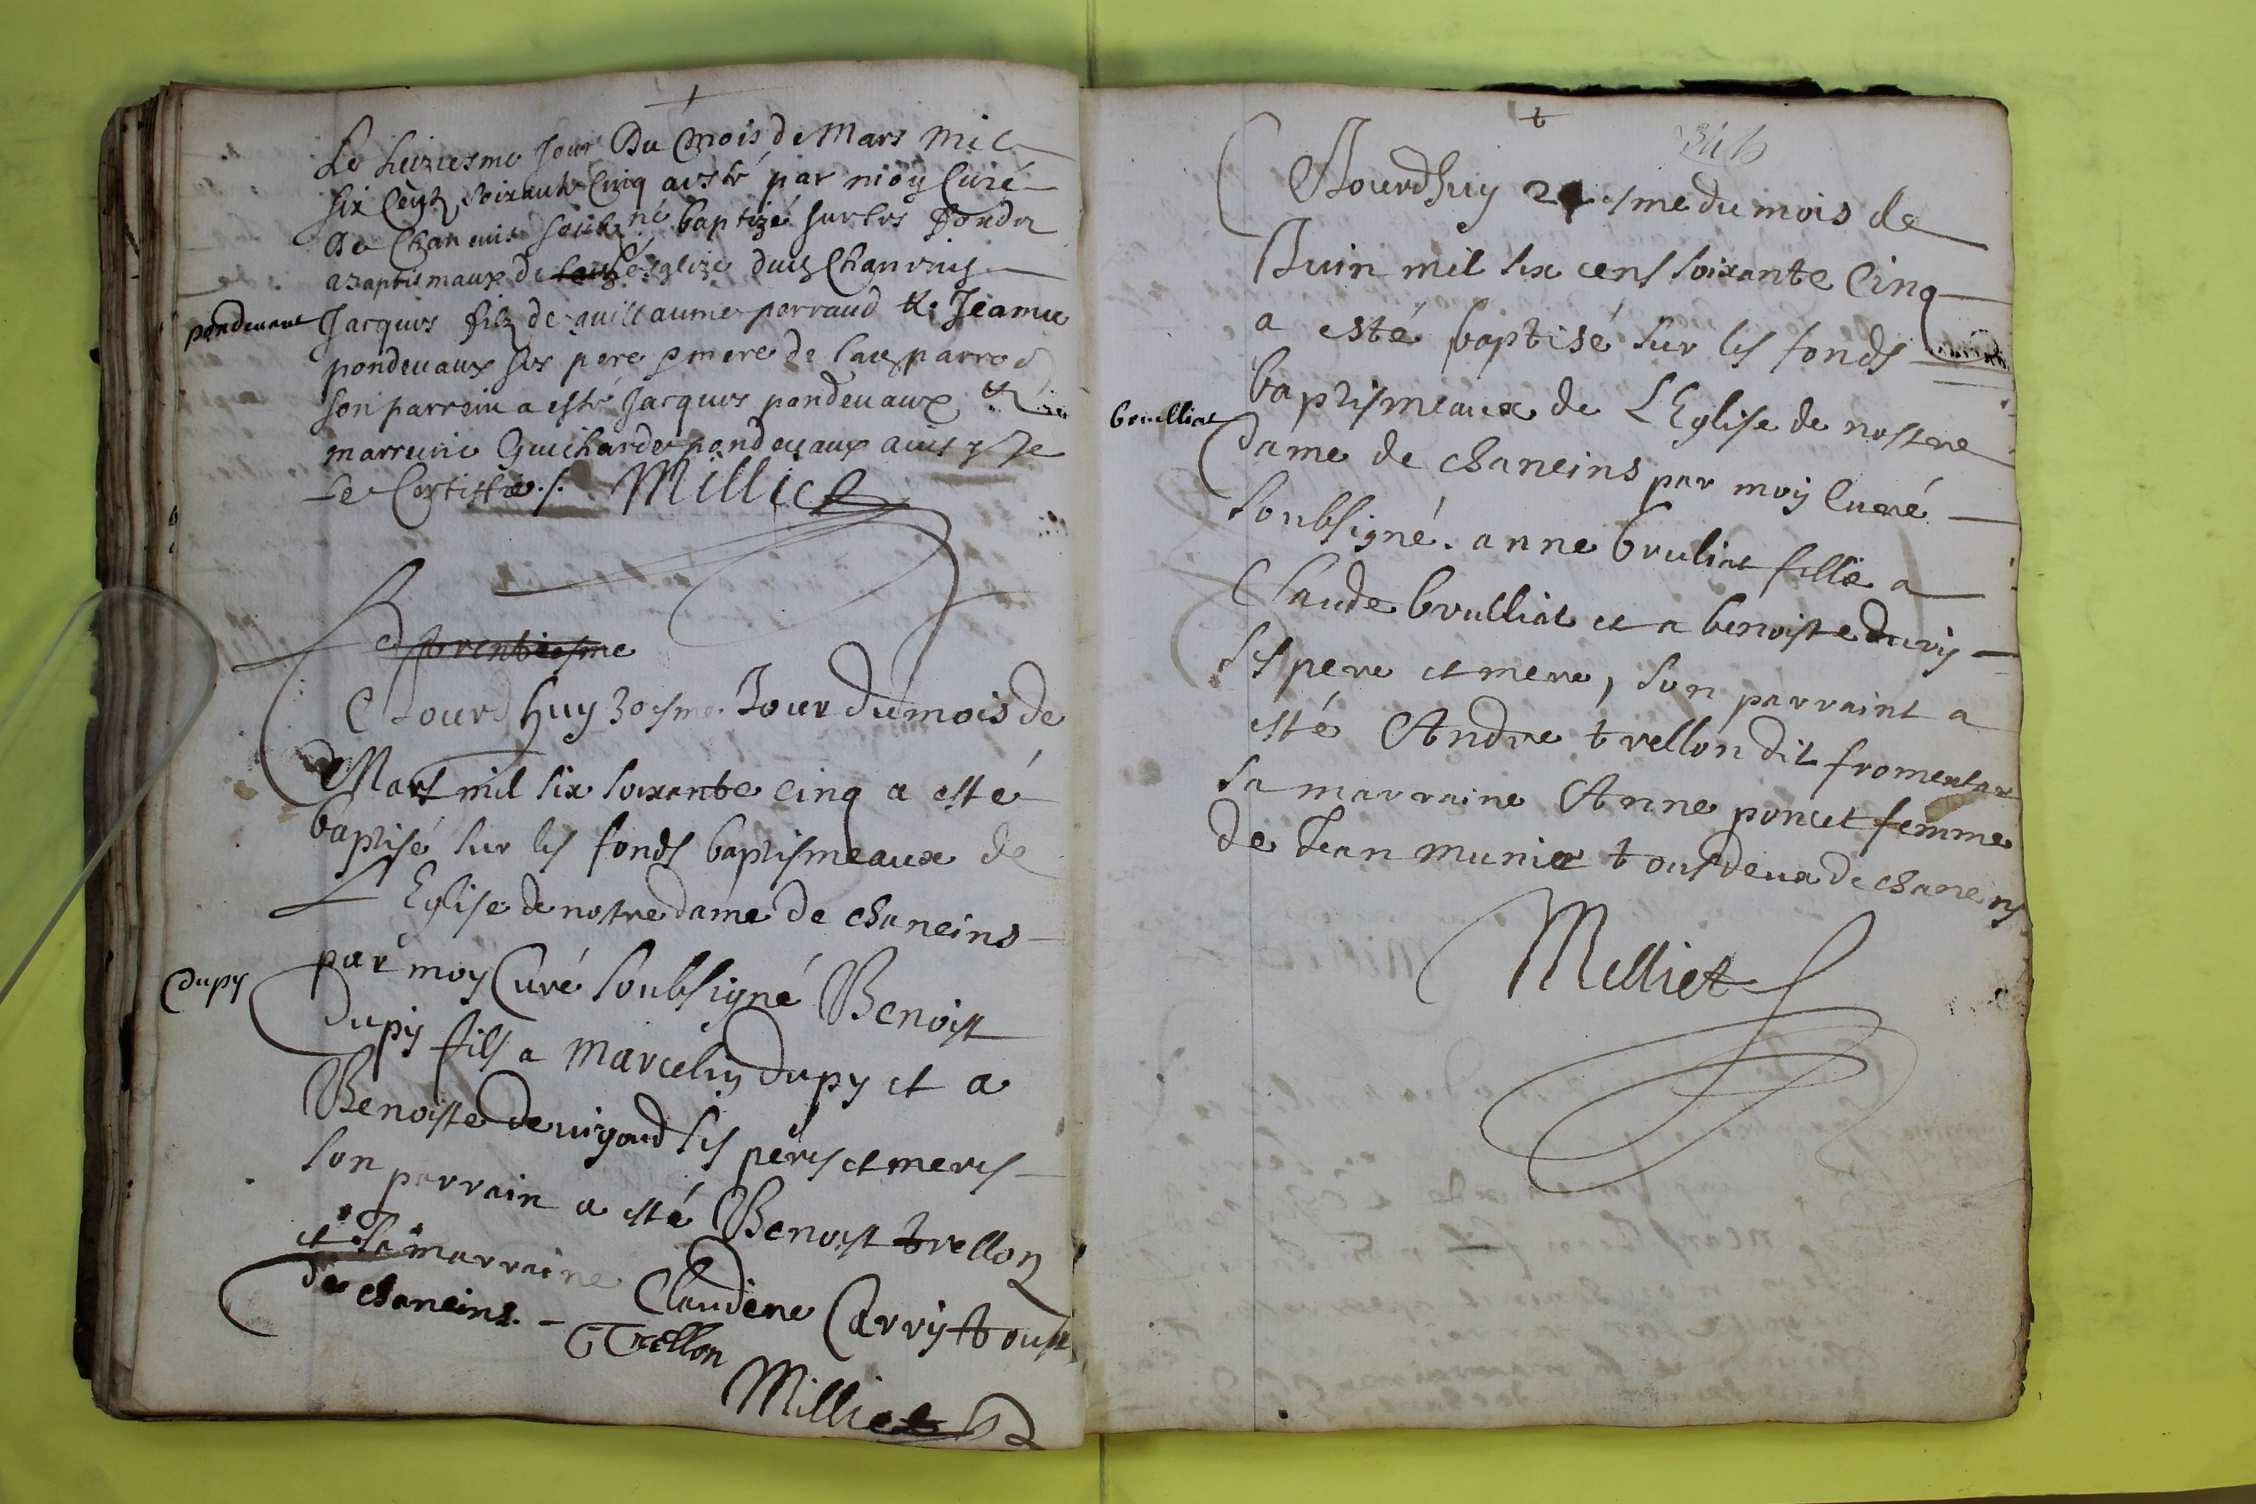 Le seiziesme Jour Du mois de Mars mil
six Centz soixante Cinq a esté par moy Curé
De Chaneins soubz né baptizé sur les fondz
Baptismaux de l'esglize dudz Chaneins
pondevaux
Jacques filz de guillaume perraud & Jeanne
pondevaux ses pere & mere de ladz parro
son parrein a esté Jacques pondevaux &
marreine Guicharde pondevaux ainsy Je
Le Certiffie ./. Milliet
trentiesme
Aiourdhuy 30esme Jour du mois de
Mars mil six soixante cinq a esté
baptisé sur les fonds baptismeaux de
L'Eglise de nostre dame de chaneins
par moy Curé soubsigné Benoist
dupy
dupy fils a Marcelin dupy et a
Benoiste devigoud ses peres et meres
son parrain a esté Benoist trellon
et sa marraine Claudine Carry tous
de chaneins.
Trellon
Milliet
t
Aiourdhuy esme du mois de
Juin mil six cens soixante Cinq
a esté baptisé sur les fonds
baptismeaux de L'Eglise de nostre
brulliat
dame de chaneins par moy Curé
soubsigné. anne bruliat fille a
Claude brulliat et a benoiste dury
ses pere et mere, son parraint a
esté Andre trellon dit fromentar
sa marraine Anne poncet femme
de Jean munier tous deux de chaneins
Milliet